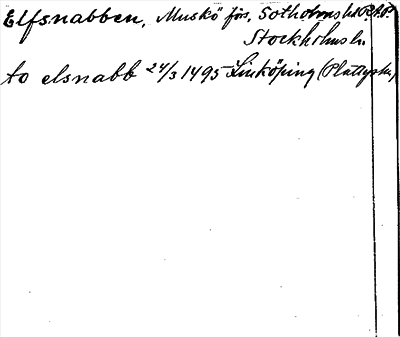 Elfsnabben, Muskö förs, Sotholms hd
Stockholms l.
to elsnabb 24/3 1495 Linköping (Plattyska)